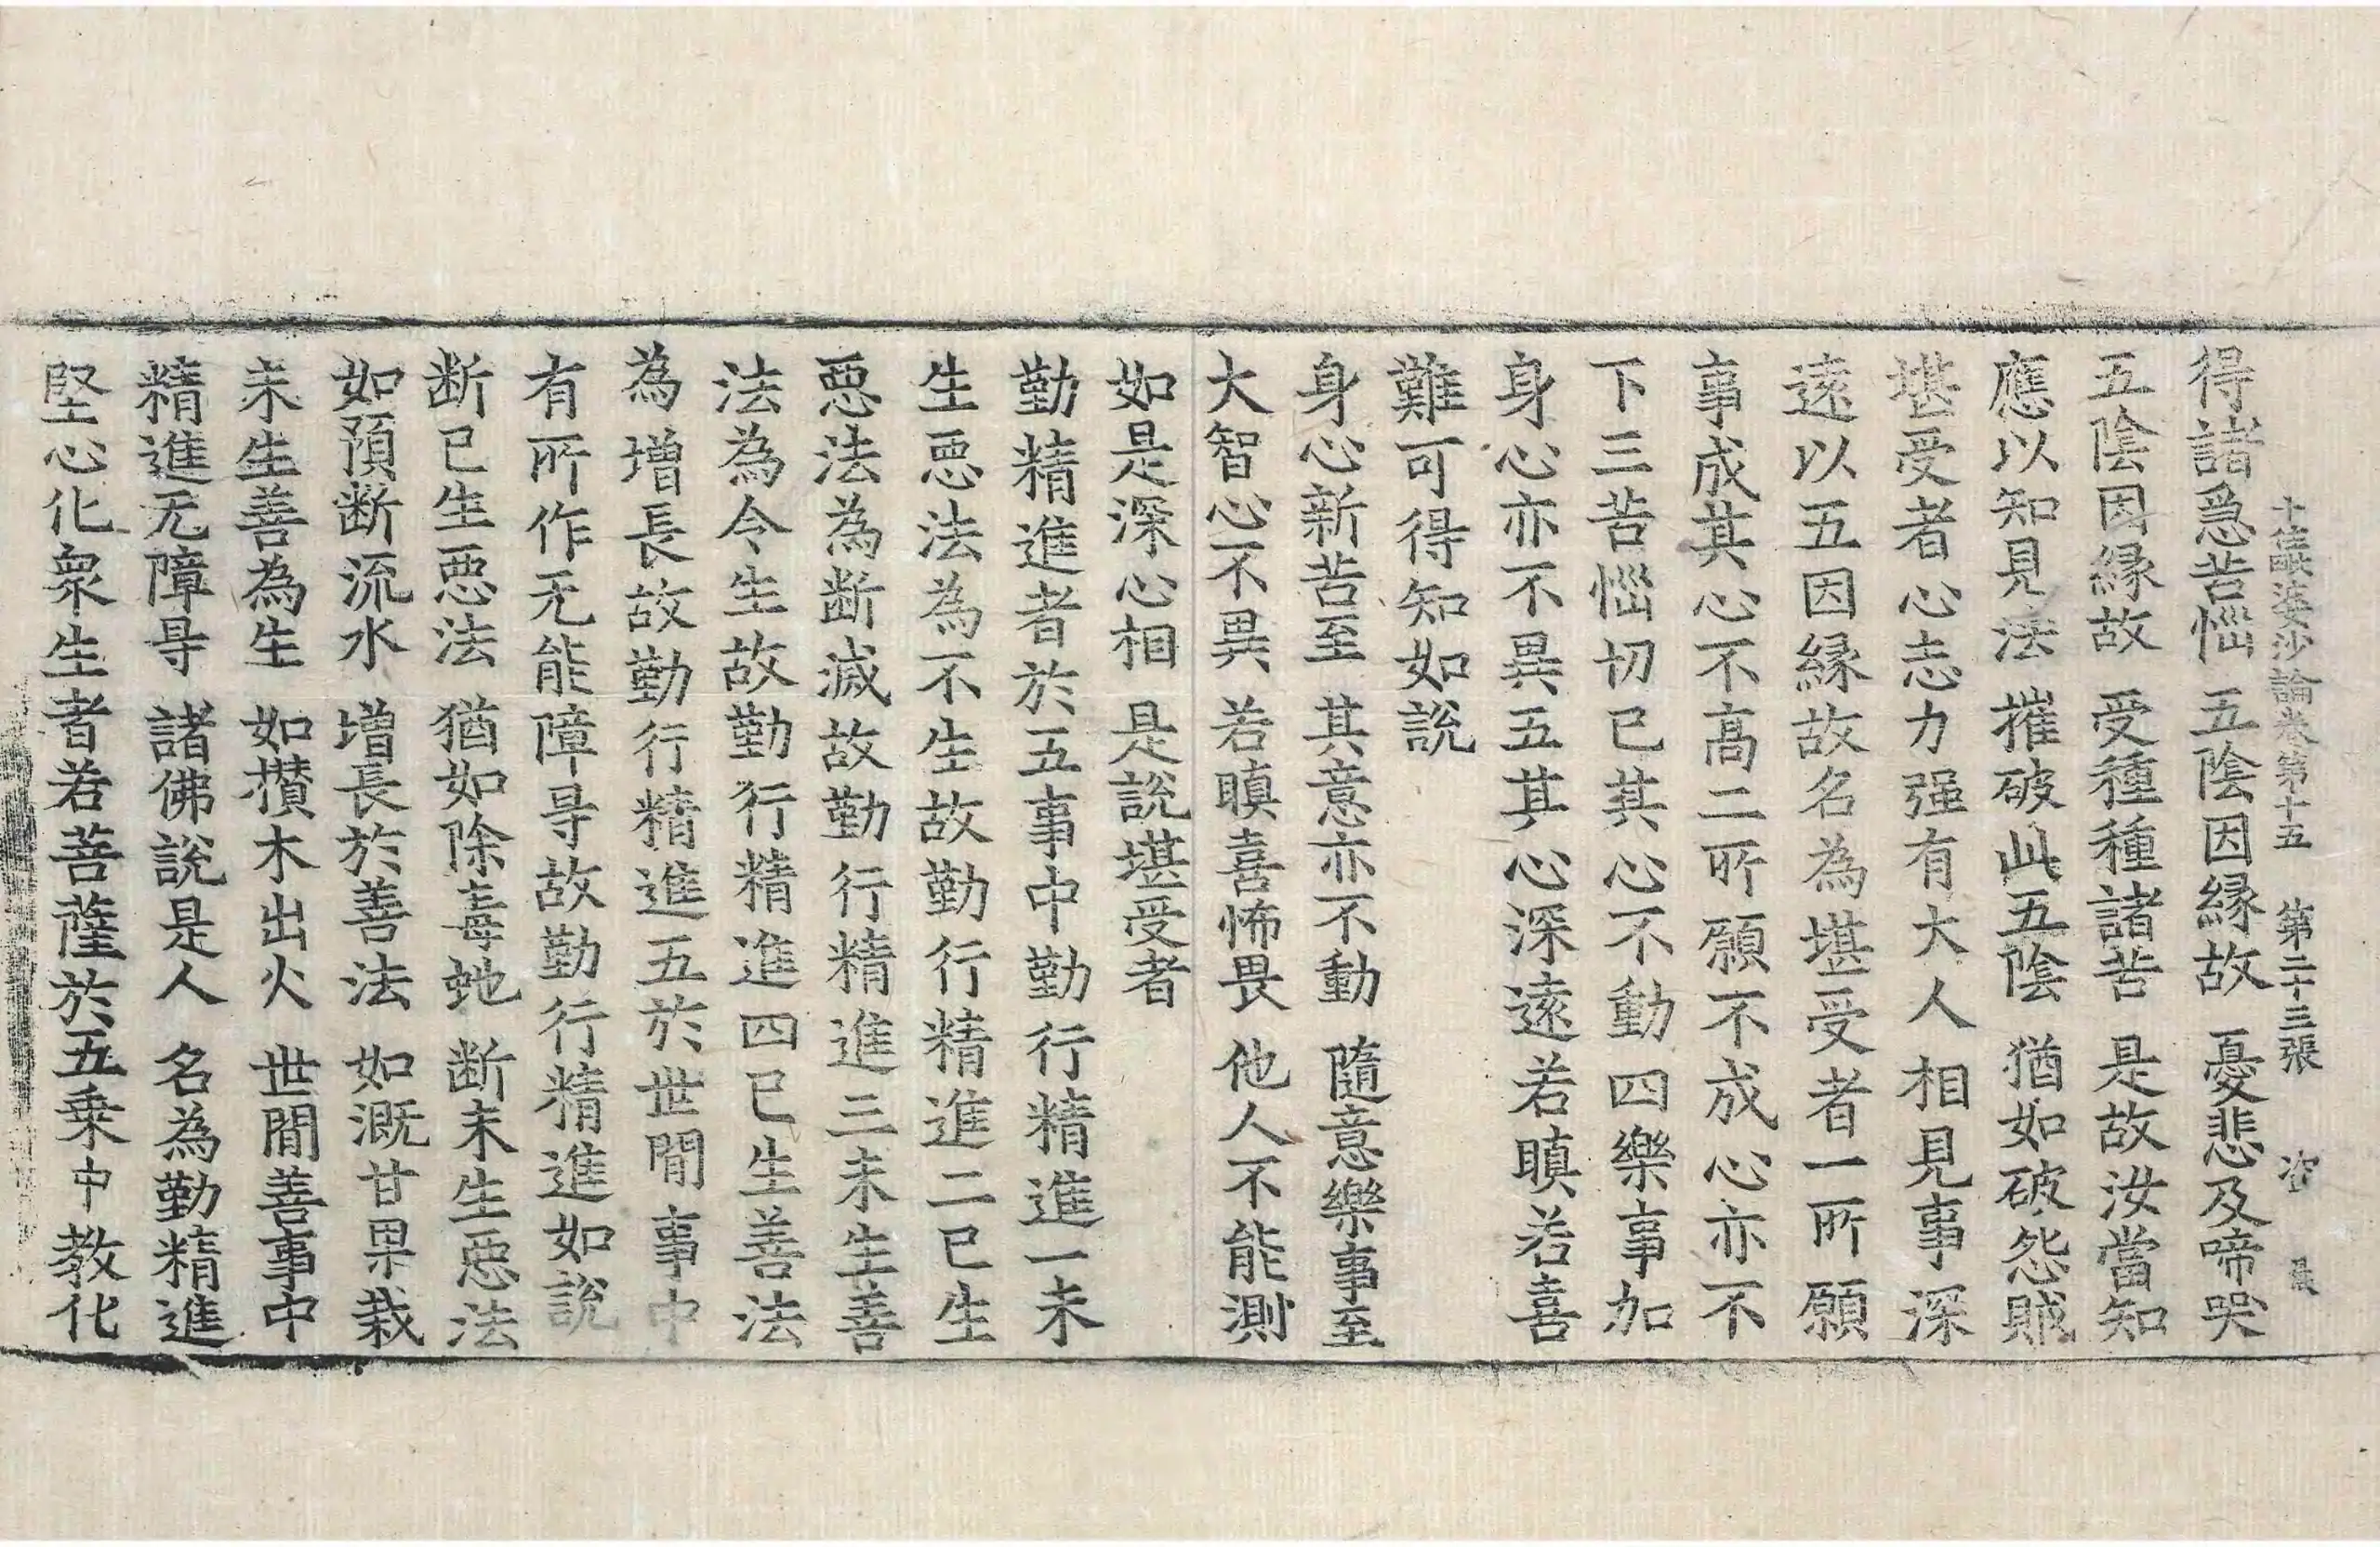 十住毗婆沙論卷第十五 第二十三張 資
得諸急苦惱 五陰因緣故 憂悲及啼哭
五陰因緣故 受種種諸苦 是故汝當知
應以知見法 摧破此五陰 猶如破怨賊
堪受者心志力强有大人相見事深
遠以五因緣故名為堪受者一所願
事成其心不高二所願不成心亦不
下三苦惱切已其心不動四樂事加
身心亦不異五其心深遠若瞋若喜
難可得知如說
身心新苦至 其意亦不動 隨意樂事至
大智心不異 若瞋喜怖畏 他人不能測
如是深心相 是說堪受者
勤精進者於五事中勤行精進一未
生惡法為不生故勤行精進二已生
惡法為断滅故勤行精進三未生善
法為令生故勤行精進四已生善法
為增長故勤行精進五於世閒事中
有所作无能障㝵故勤行精進如說
断已生惡法 猶如除毒虵 断未生惡法
如預断流水 增長於善法 如溉甘果栽
未生善為生 如攢木出火 世閒善事中
精進无障㝵 諸佛說是人 名為勤精進
堅心化衆生者若菩薩於五乗中教化